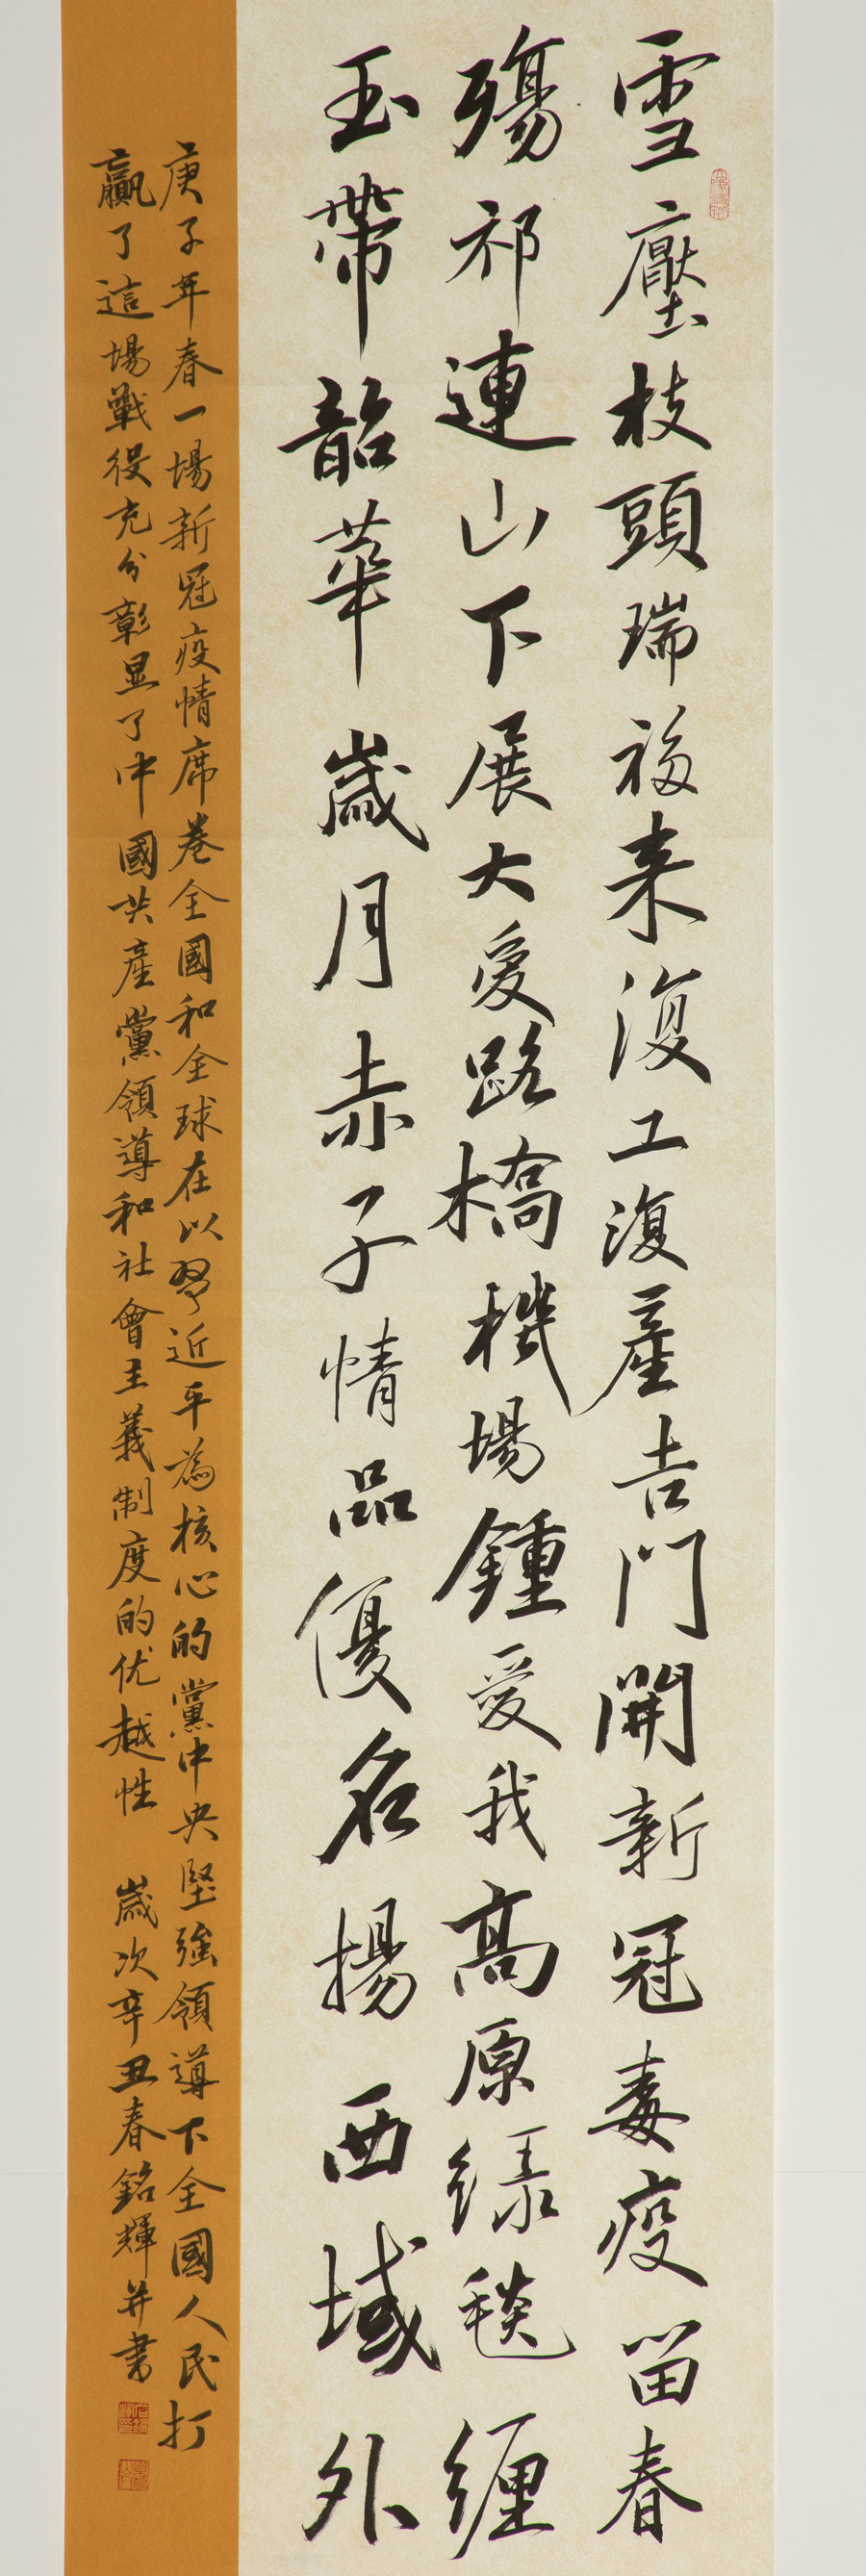 雪壓枝頭瑞福来復工復產吉門開新冠毒疫留春
殤祁連山下展大愛路橋機場鍾愛我高原綠毯纒
玉帶韶華歲月赤子情品優名揚西域外
庚子年春一場新冠疫情席卷全國和全球在以習近平為核心的黨中央堅強領導下全國人民打
贏了這場戰役充分彰显了中國共產黨領導和社會主義制度的优越性 歲次辛丑春銘輝并書